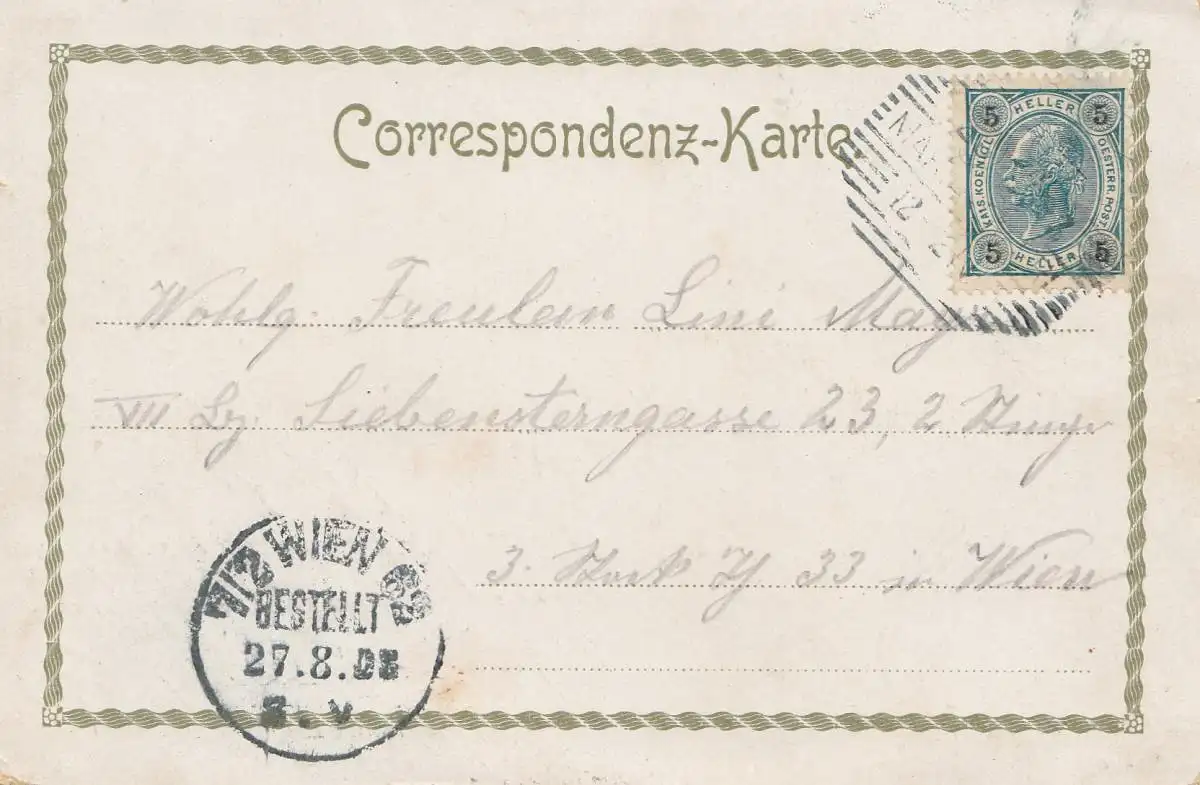 Correspondenz-Karte.
5 HELLER 5
KAIS. KOENIGL. OESTERR. POST.
5 HELLER 5
12
Wohlg. Freulein Lini
VII Bz. Siebensterngasse 23, 2 Stiege
3. Stock Th 33 in Wien
7/2 WIEN 63
BESTELLT
27.8.